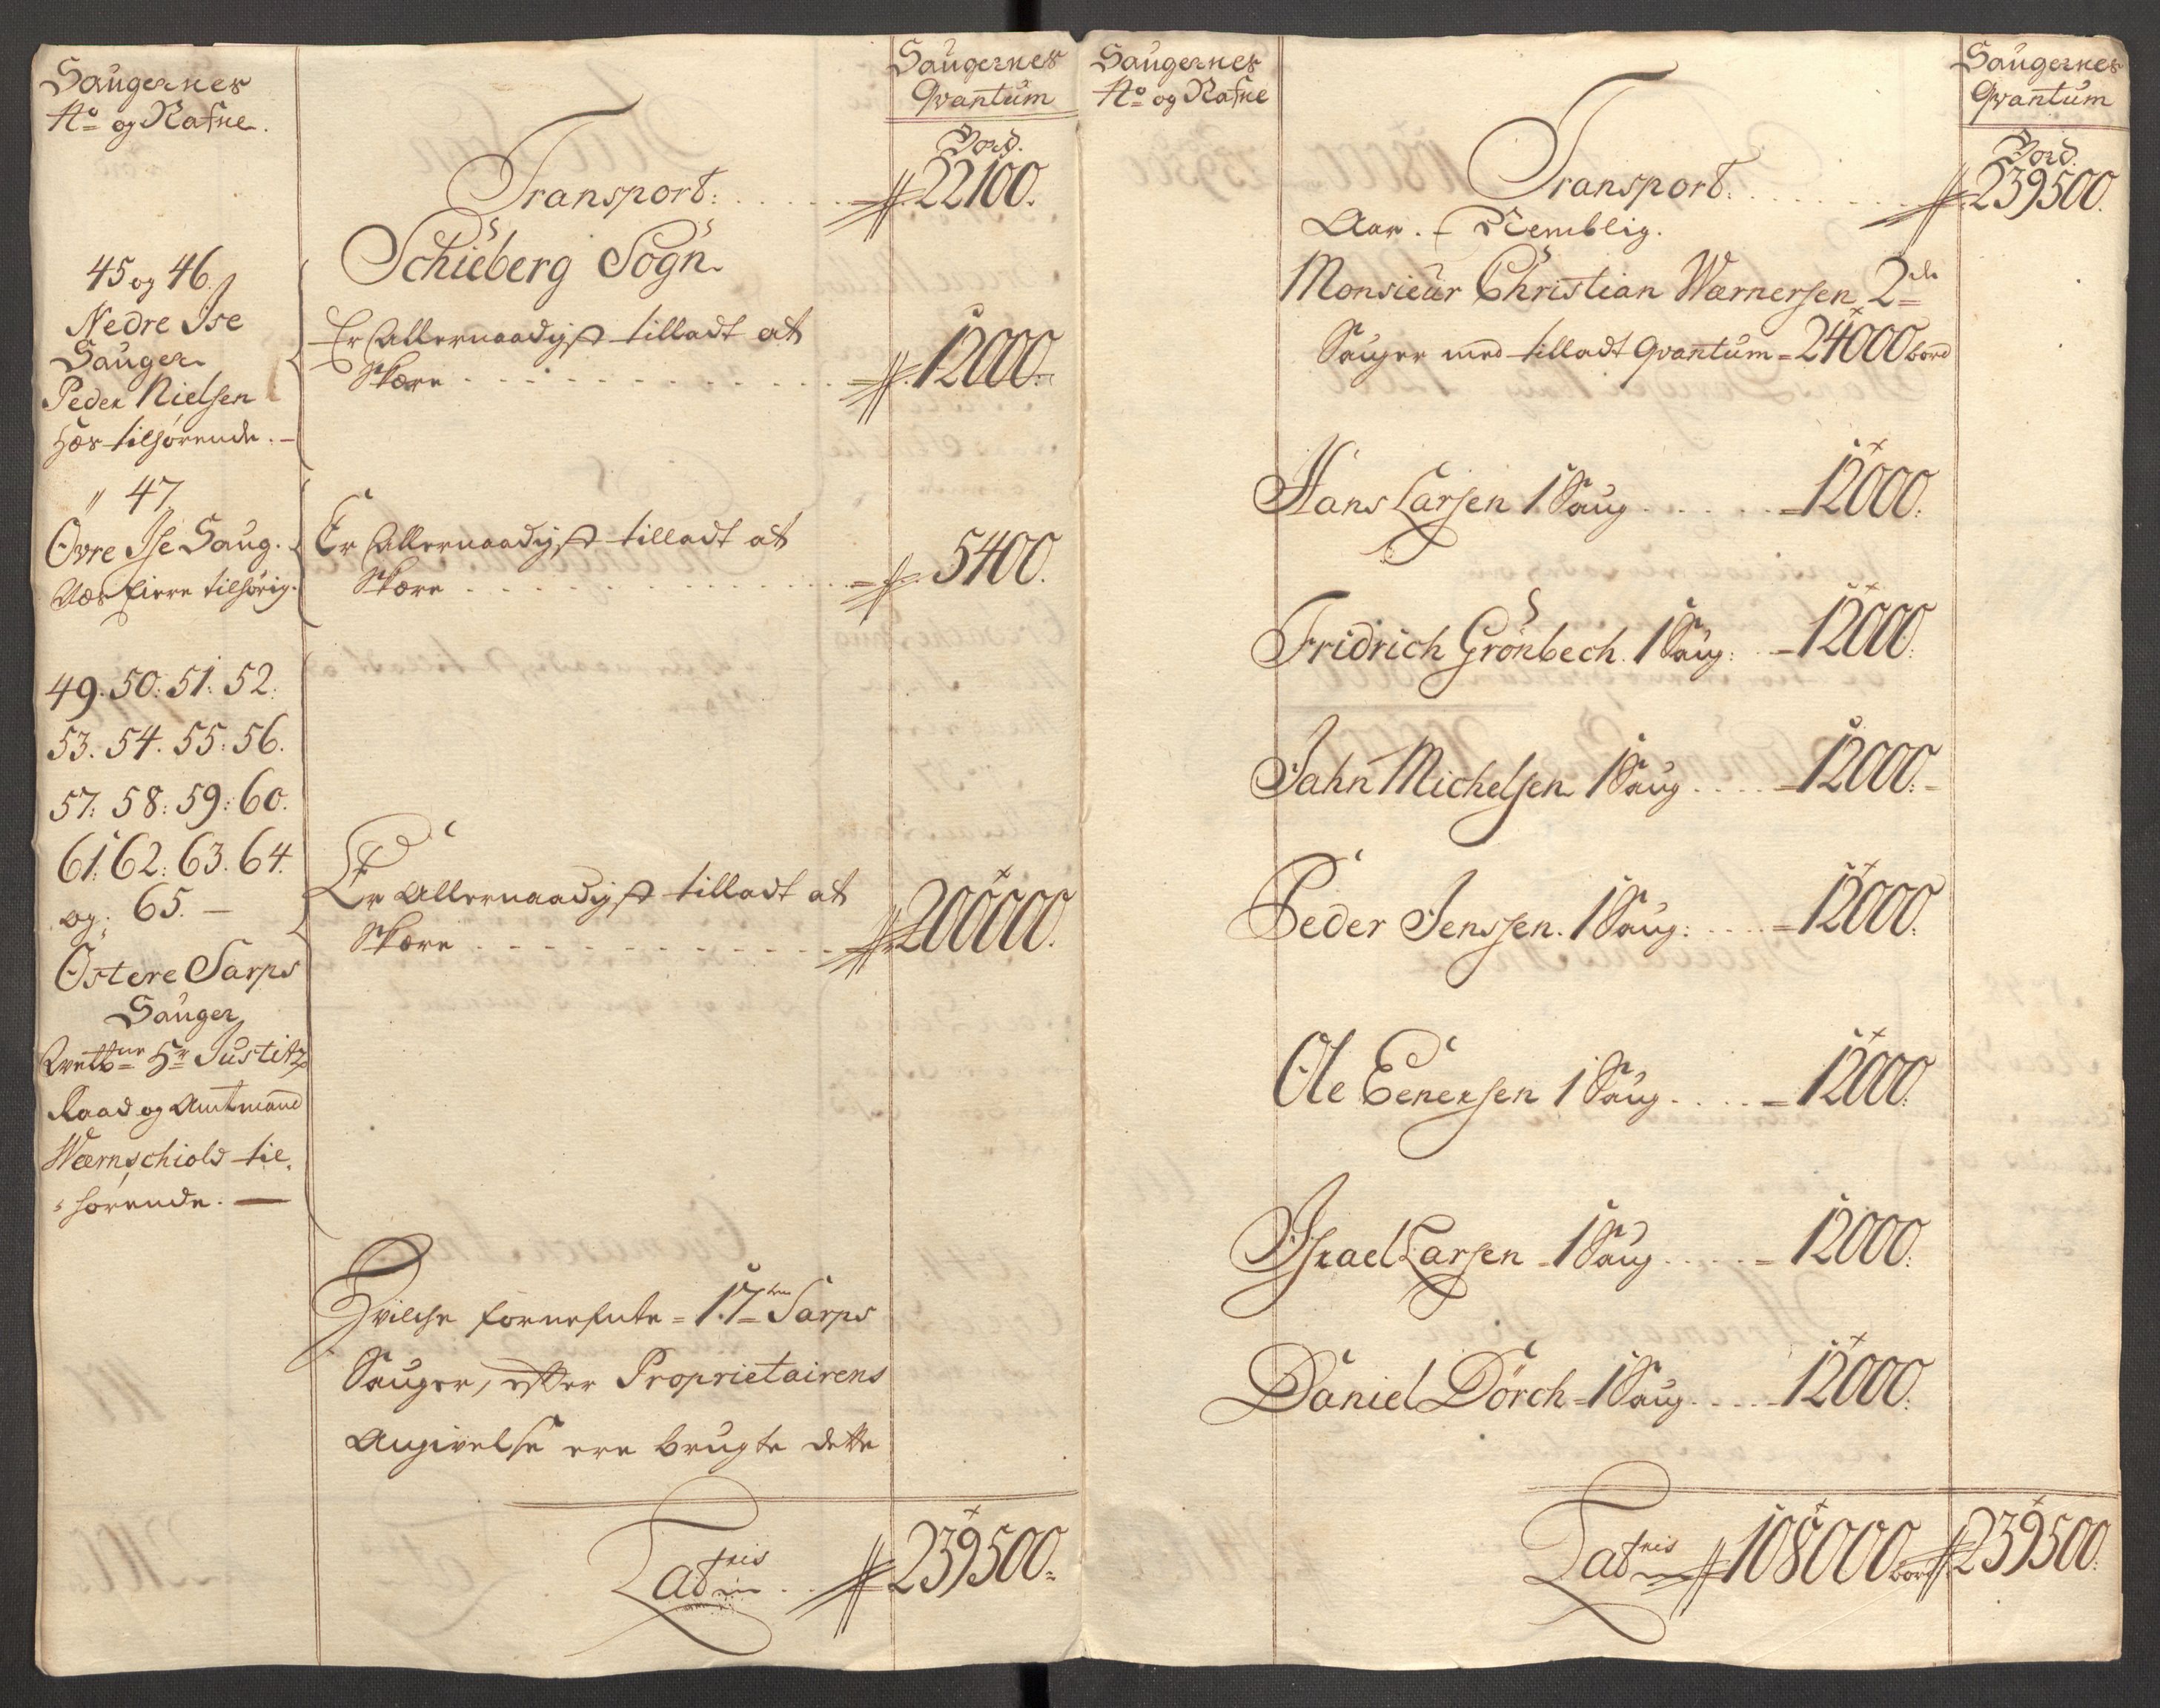 Saugernes
No og Nafne.
Saugernes
Qvantum
Bord.
Transport: . . . . . 22100.
Schieberg Sogn.
45 og 46.
Nedre Ise
Sauger
Peder Nielsen
Hæs tilhørende. -
Er Allernaadigst tilladt at
Skære . . . . . . . . . . 12000.
" 47
Øvre Ise Saug.
tilhørig.
Er Allernaadigst tilladt at
Skære . . . . . . . . . . 5400.
49. 50: 51: 52.
53. 54. 55: 56.
57: 58: 59: 60.
61: 62: 63. 64.
og: 65. -
Østere Sarps
Sauger
Hr Justitz
Raad og Amtmand
Wærnschiold til-
hørende. -
Er Allernaadigst tilladt at
Skære . . . . . . . . . . 200000.
Hvilche fornefnte = 17 Sarps
Sauger, efter Proprietairens
Angivelse ere brugte dette
Latris 239500.
Saugernes
No og Nafne
Saugernes
Qvantum
Bord.
Transport. . . . . . 239500.
Aar. Nemblig.
Monsieur Christian Wærnersen 2de
Sauger med tilladt Qvantum = 24000 bord
Hans Larsen 1 Saug . . . . . 12000.
Fridrich Grönbech. 1 Saug: . . 12000.
Jahn Michelsen 1 Saug . . . . 12000.
Peder Jenssen. 1 Saug: . . . . 12000.
Ole Eenersen 1 Saug . . . . . 12000.
Israel Larsen 1 Saug . . . . . 12000.
Daniel Dörch = 1 Saug . . . . 12000.
Latris 108000 bord 239500.